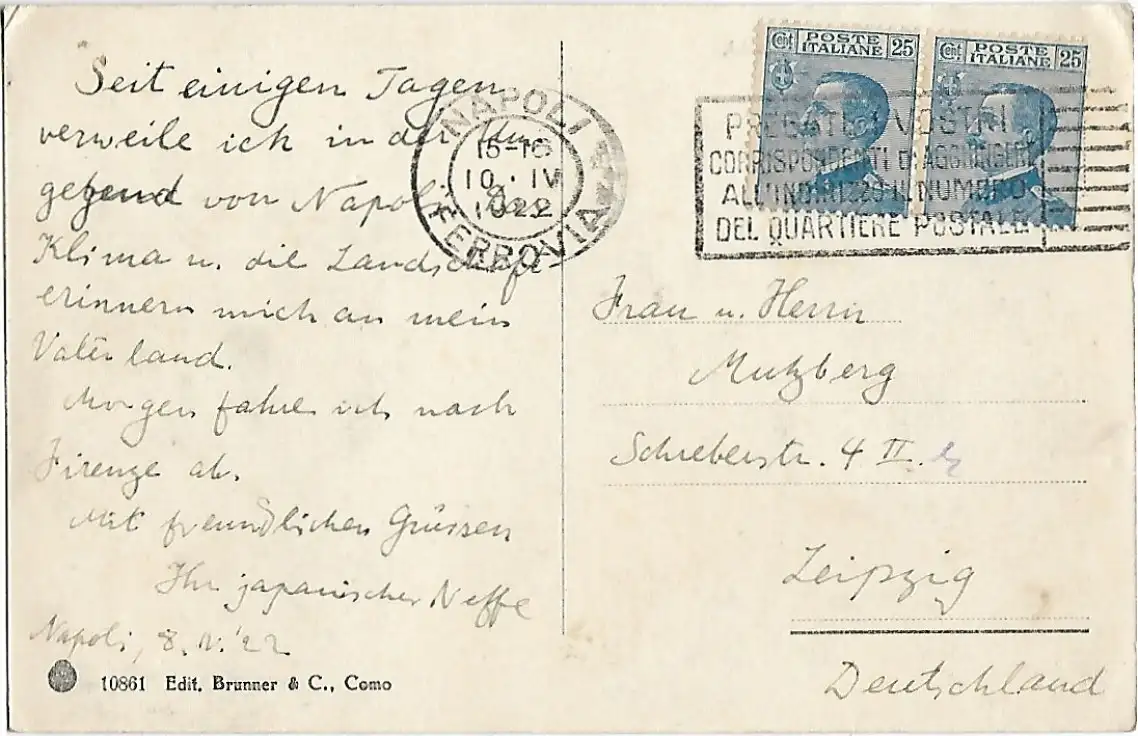 Seit einigen Tagen
verweile ich in der Um-
gegend von Napoli
Klima u. die Landschaft
erinnern mich an mein
Vaterland.
Morgen fahre ich nach
Firenze ab.
Mit freundlichen Grüssen
Ihr japanischer Neffe
Napoli, 8. '22
10861 Edit. Brunner & C., Como
NAPOLI
10 · IV
1922
FERROVIA
Cent POSTE ITALIANE 25
Cent POSTE ITALIANE 25
PREGATE I VOSTRI
CORRISPONDENTI DI AGGIUNGERE
ALL'INDIRIZZO IL NUMERO
DEL QUARTIERE POSTALE
Frau u. Herrn
Mutzberg
Schreberstr. 4 II.
Leipzig
Deutschland